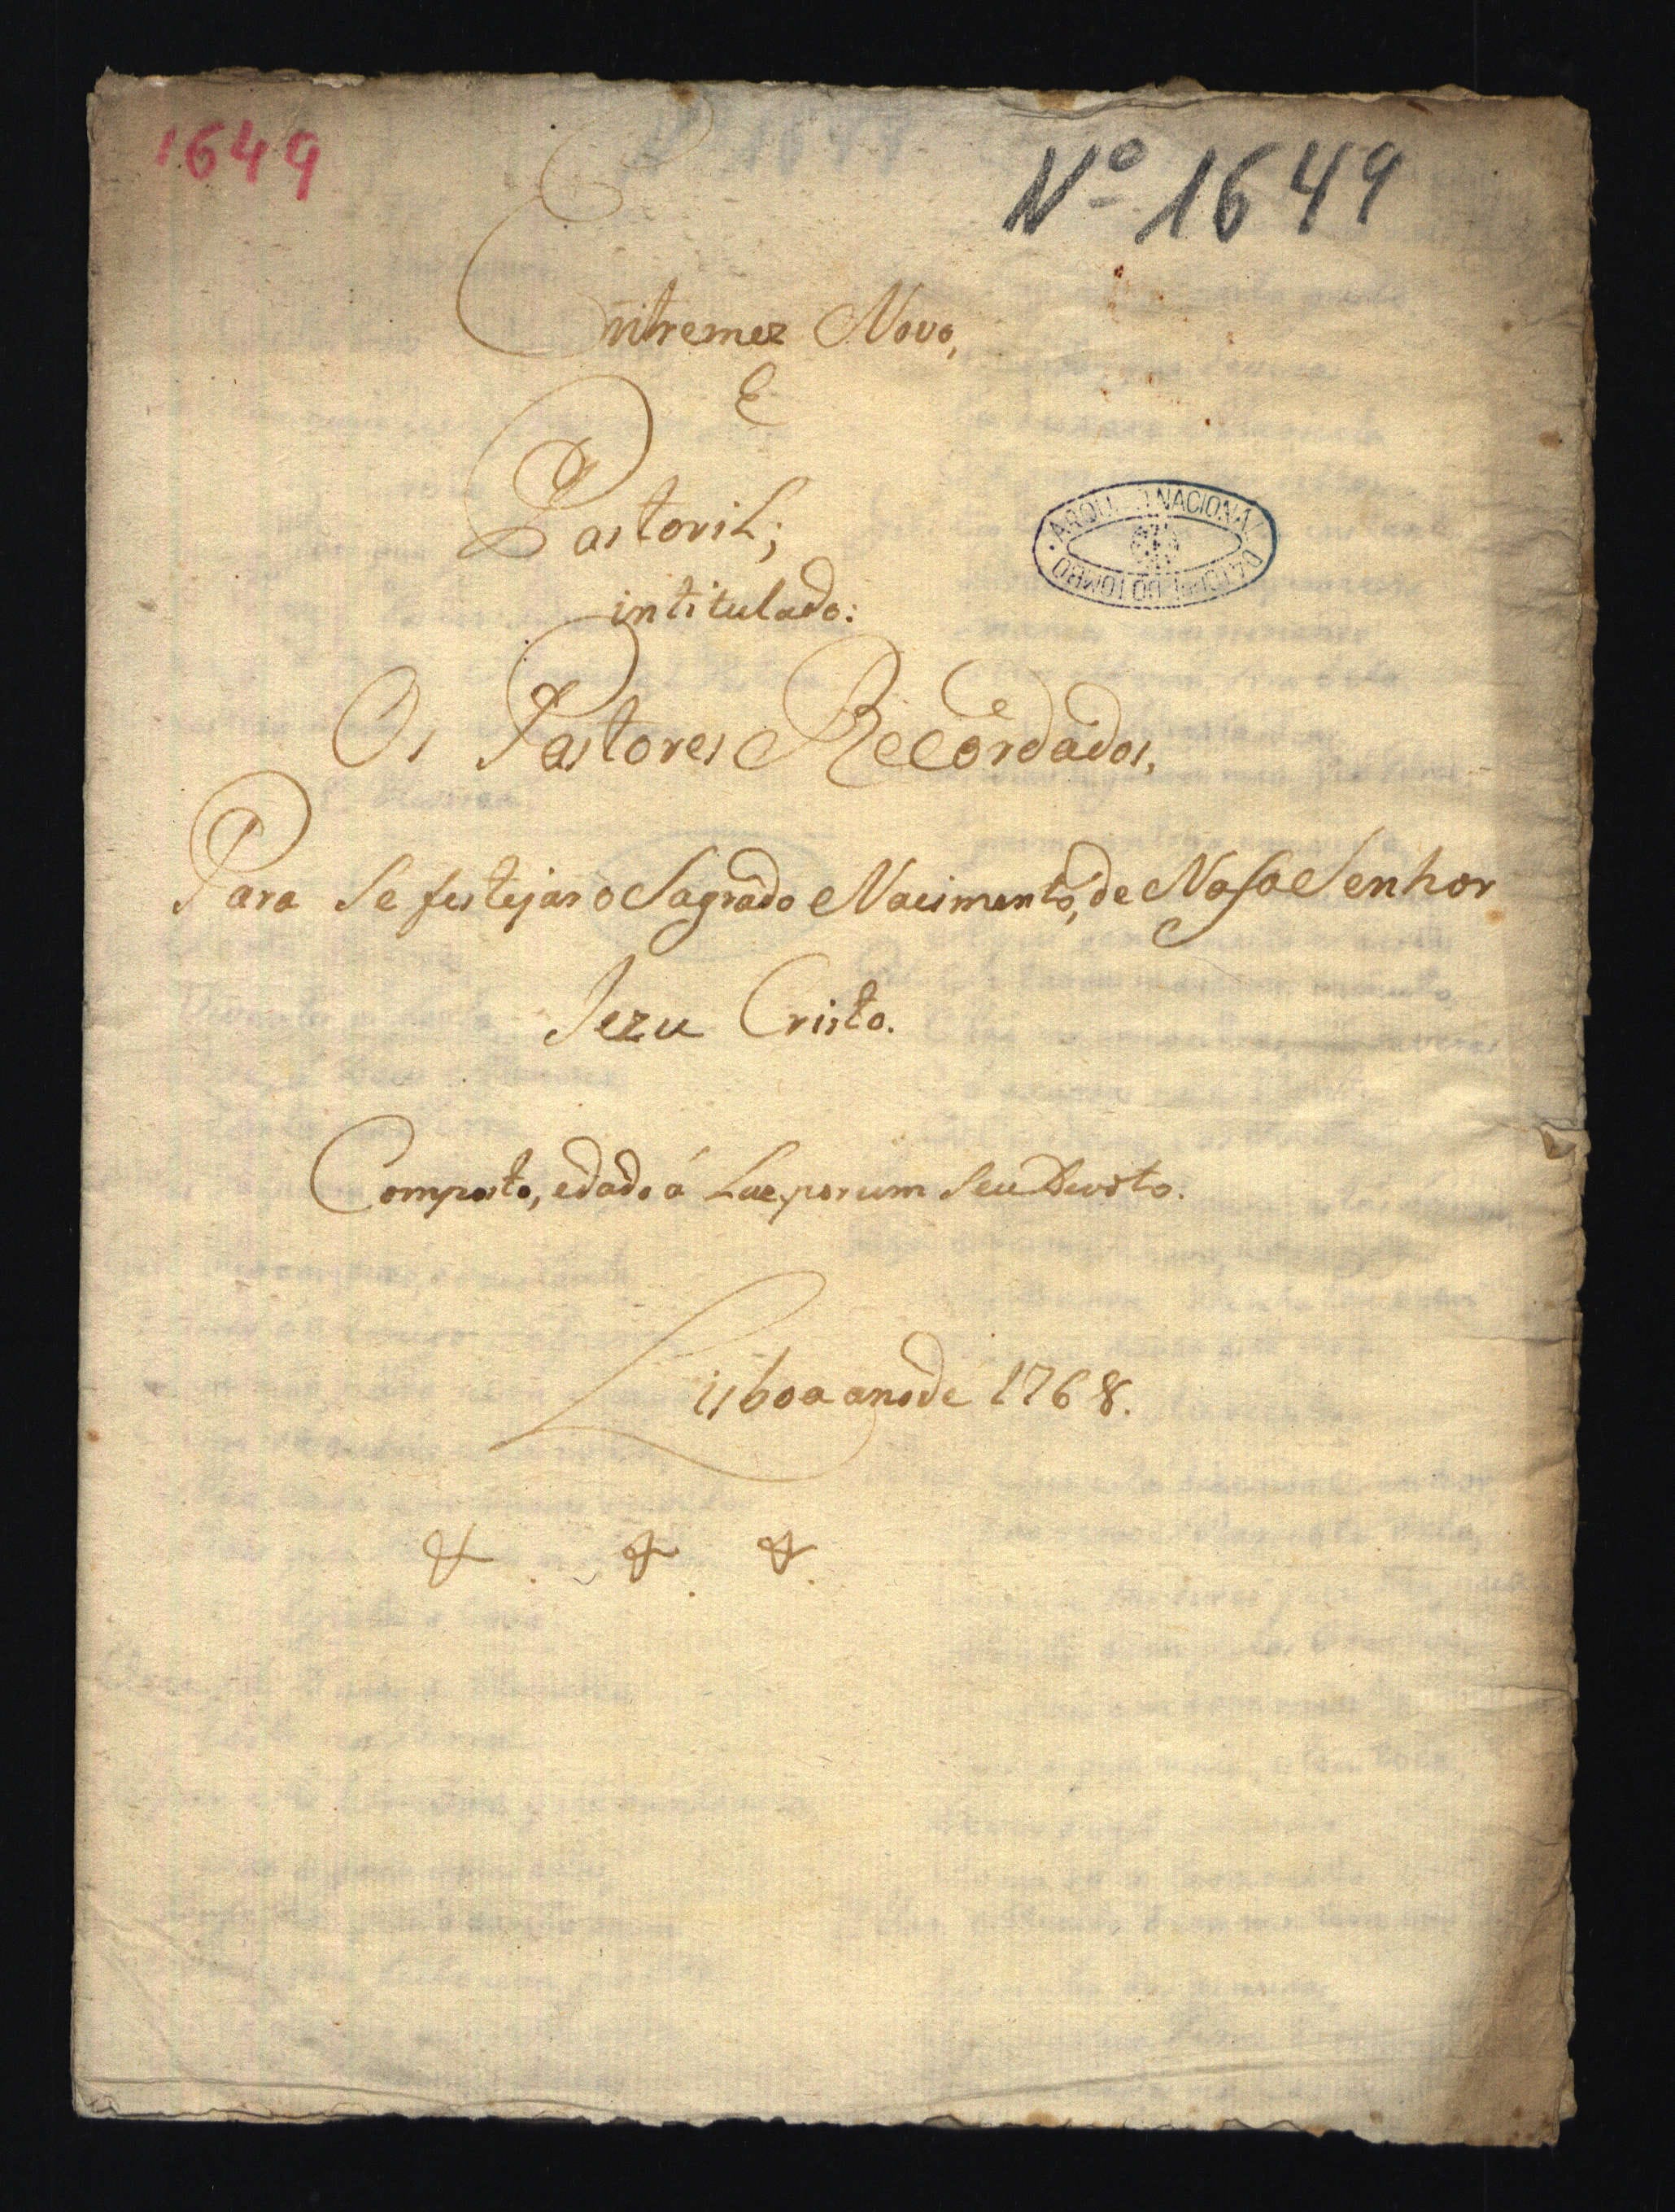 1649
Nº 1649
Entremez Novo,
E
Pastoril;
intitulado:
Os Pastores Recordados,
Para Se festejar o Sagrado Nacimento, de Noso Senhor
Jezu Cristo.
Composto, e dado á Luz, por um Seu Devoto.
Lisboa ano de 1768.
&. &. &.
ARQUIVO NACIONAL DA TORRE DO TOMBO